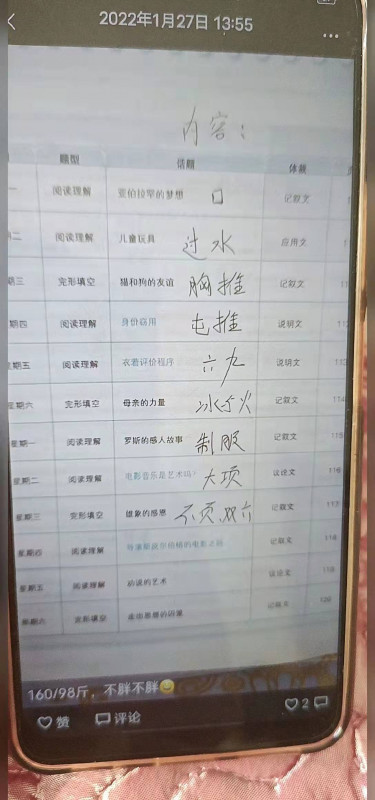 2022年1月27日 13:55
内容：
题型 话题 体裁
一 阅读理解 亚伯拉罕的梦想 口 记叙文
二 阅读理解 儿童玩具 过水 应用文
期三 完形填空 猫和狗的友谊 胸推 记叙文
期四 阅读理解 身份窃用 屯推 说明文
期五 阅读理解 衣着评价程序 六九 说明文
星期六 完形填空 母亲的力量 冰与火 记叙文 114
星期一 阅读理解 罗斯的感人故事 制服 记叙文 115
星期二 阅读理解 电影音乐是艺术吗? 大项 议论文 116
星期三 完形填空 雄象的感恩 不页,双六 记叙文 117
星期四 阅读理解 记叙文 118
星期五 阅读理解 的艺术 议论文 119
星期六 完形填空 记叙文 120
160/98斤，不胖不胖
赞 评论 2